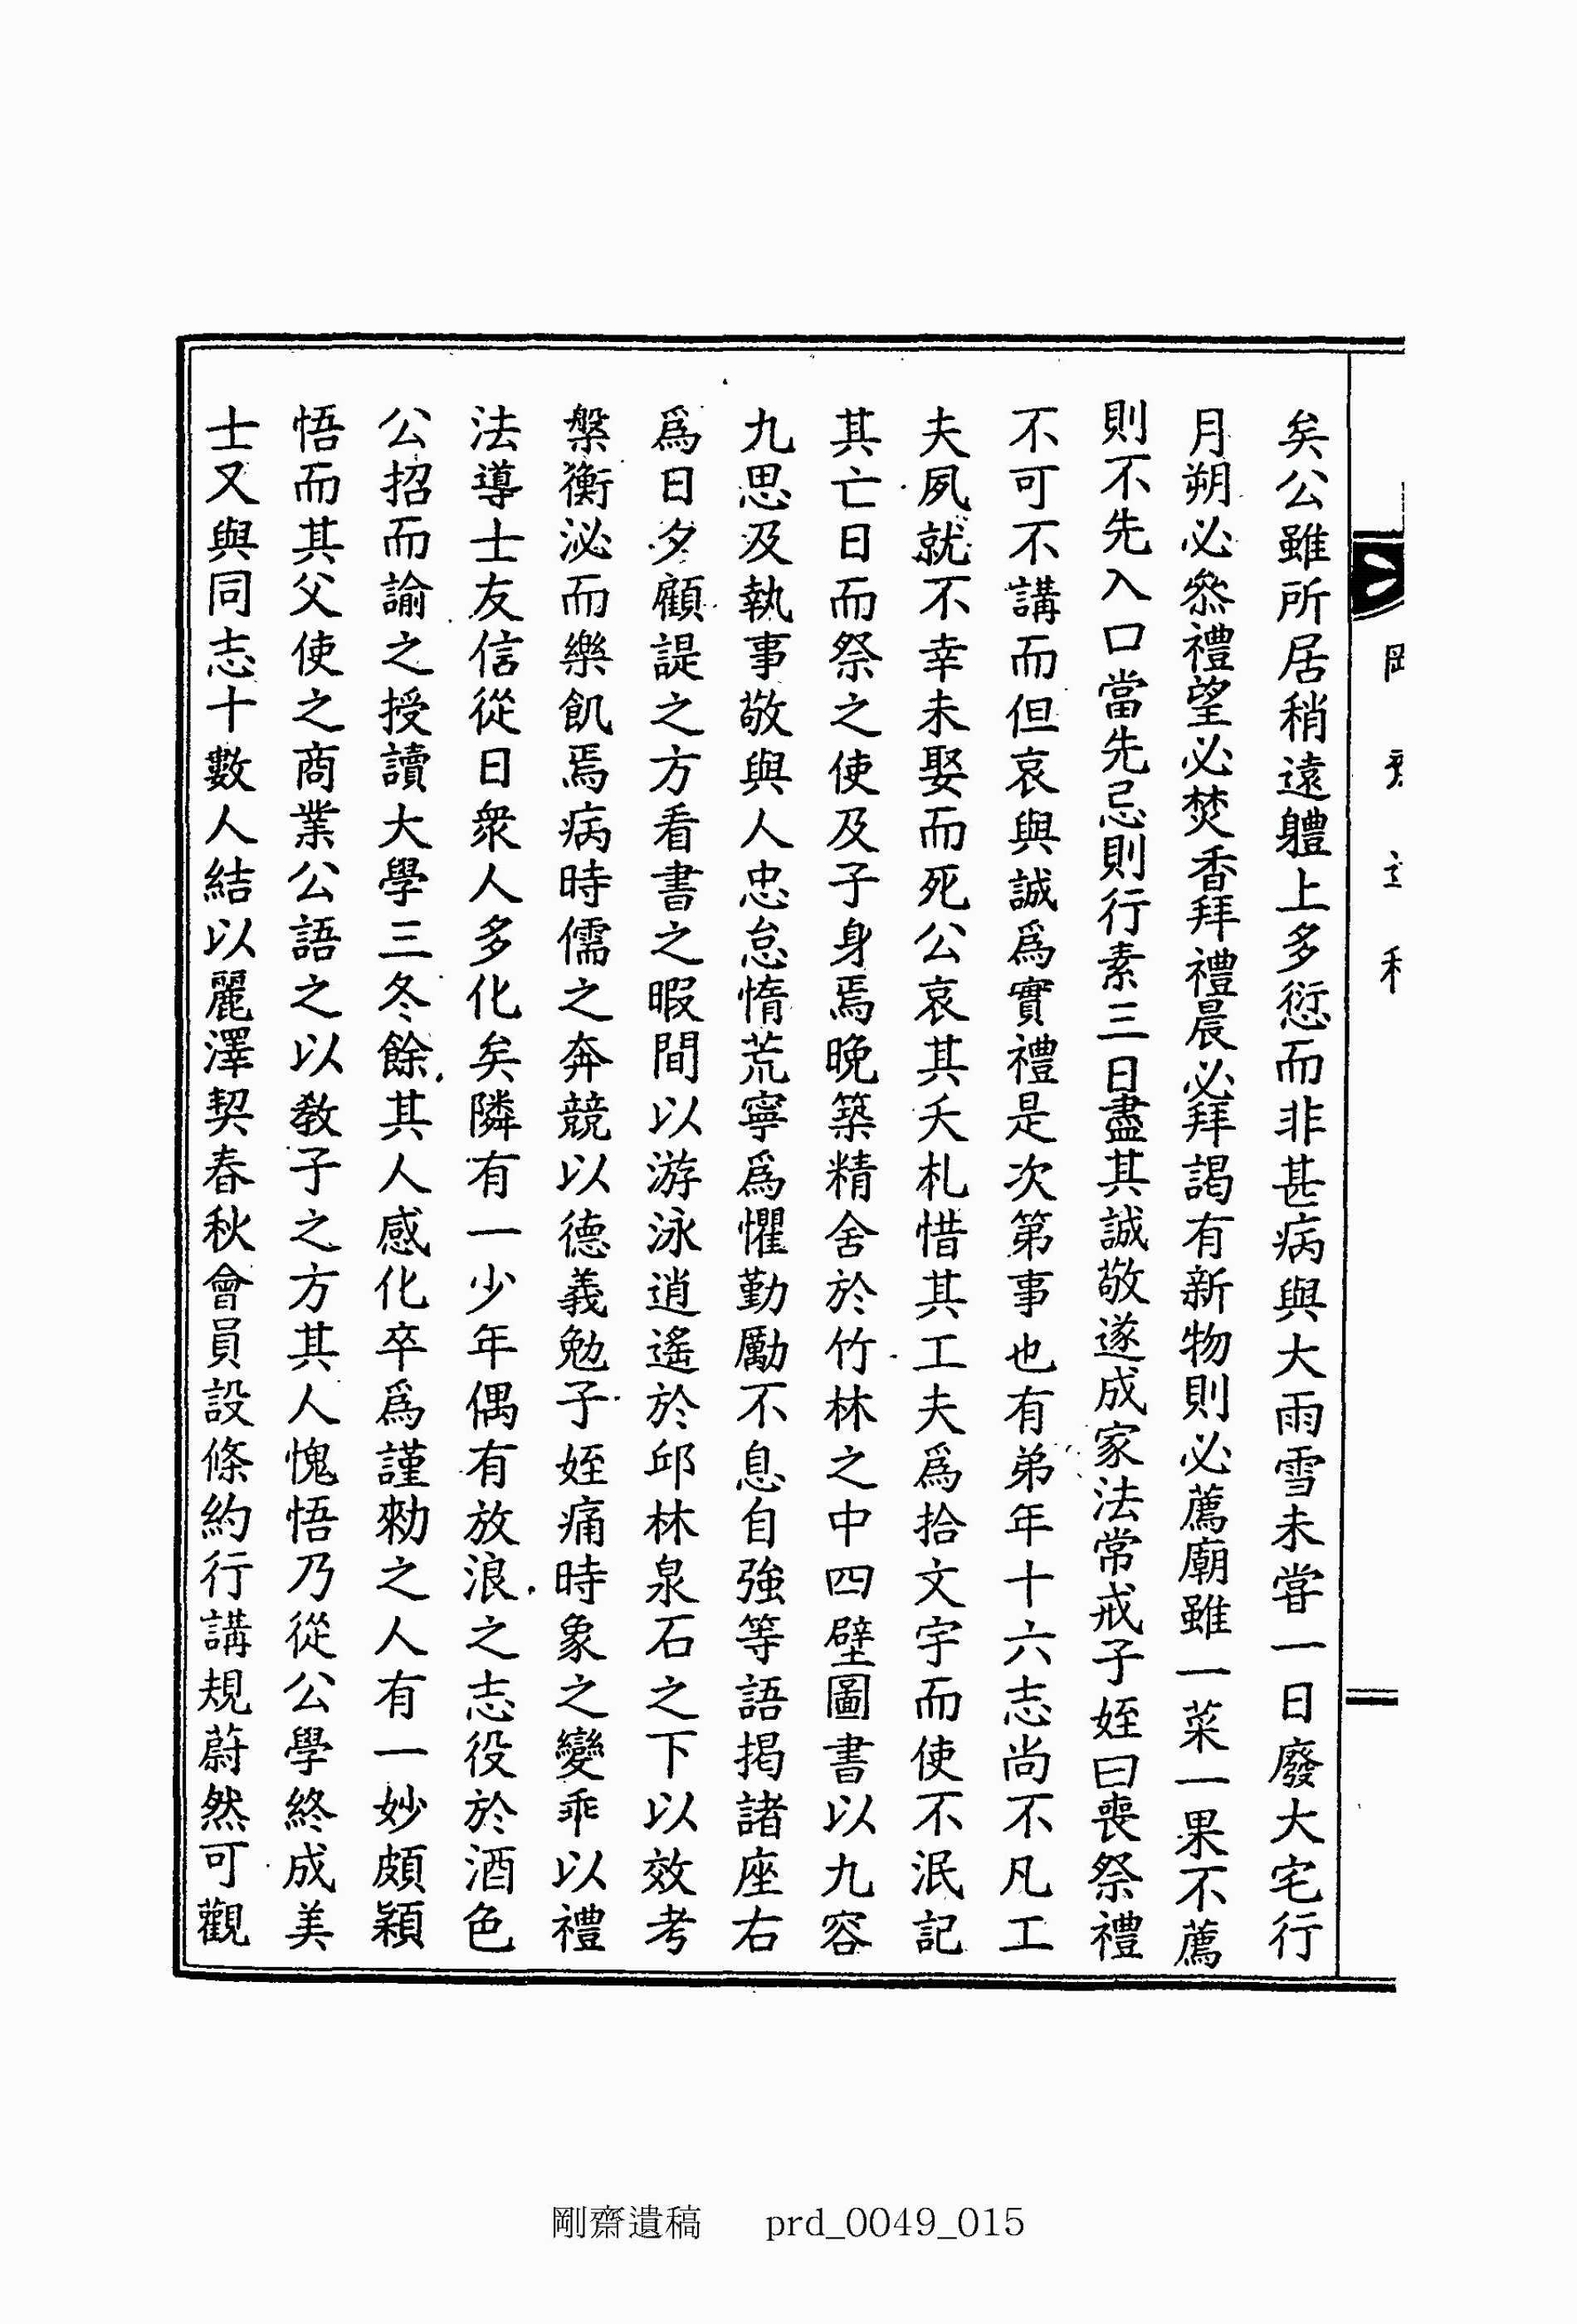 矣公雖所居稍遠軆上多愆而非甚病與大雨雪未甞一日廢大宅行
月朔必叅禮望必焚香拜禮晨必拜謁有新物則必薦廟雖一菜一果不薦
則不先入口當先忌則行素三日盡其誠敬遂成家法常戒子姪曰喪祭禮
不可不講而但哀與誠爲實禮是次第事也有弟年十六志尙不凡工
夫夙就不幸未娶而死公哀其夭札惜其工夫爲拾文字而使不泯記
其亡日而祭之使及子身焉晩築精舍於竹林之中四壁圖書以九容
九思及執事敬與人忠怠惰荒寧爲懼勤勵不息自強等語揭諸座右
爲日夕顧諟之方看書之暇間以游泳逍遙於邱林泉石之下以效考
槃衡泌而樂飢焉病時儒之奔競以德義勉子姪痛時象之變乖以禮
法導士友信從日衆人多化矣隣有一少年偶有放浪之志役於酒色
公招而諭之授讀大學三冬餘其人感化卒爲謹勑之人有一妙頗穎
悟而其父使之商業公語之以敎子之方其人愧悟乃從公學終成美
士又與同志十數人結以麗澤契春秋會員設條約行講規蔚然可觀
剛齋遺稿 prd_0049_015